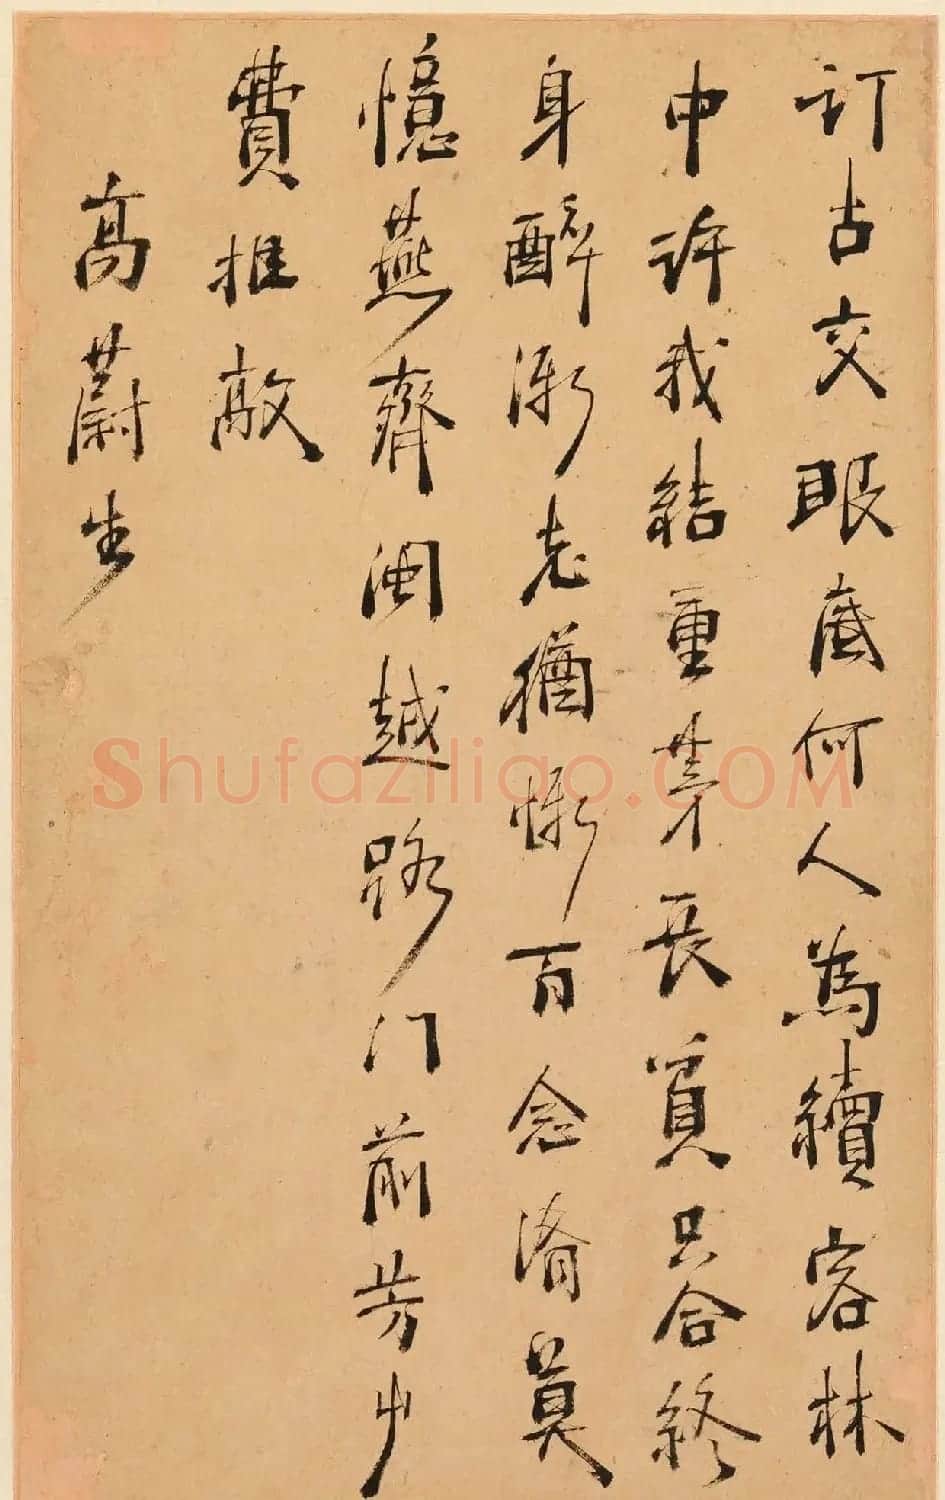 訂古交眼底何人為續客林
中許我結重茅長貧只合終
身醉漸老猶慚百念淆莫
憶燕齊閩越路门前芳屮
費推敲
高蔚生
Shufaziliao.COM